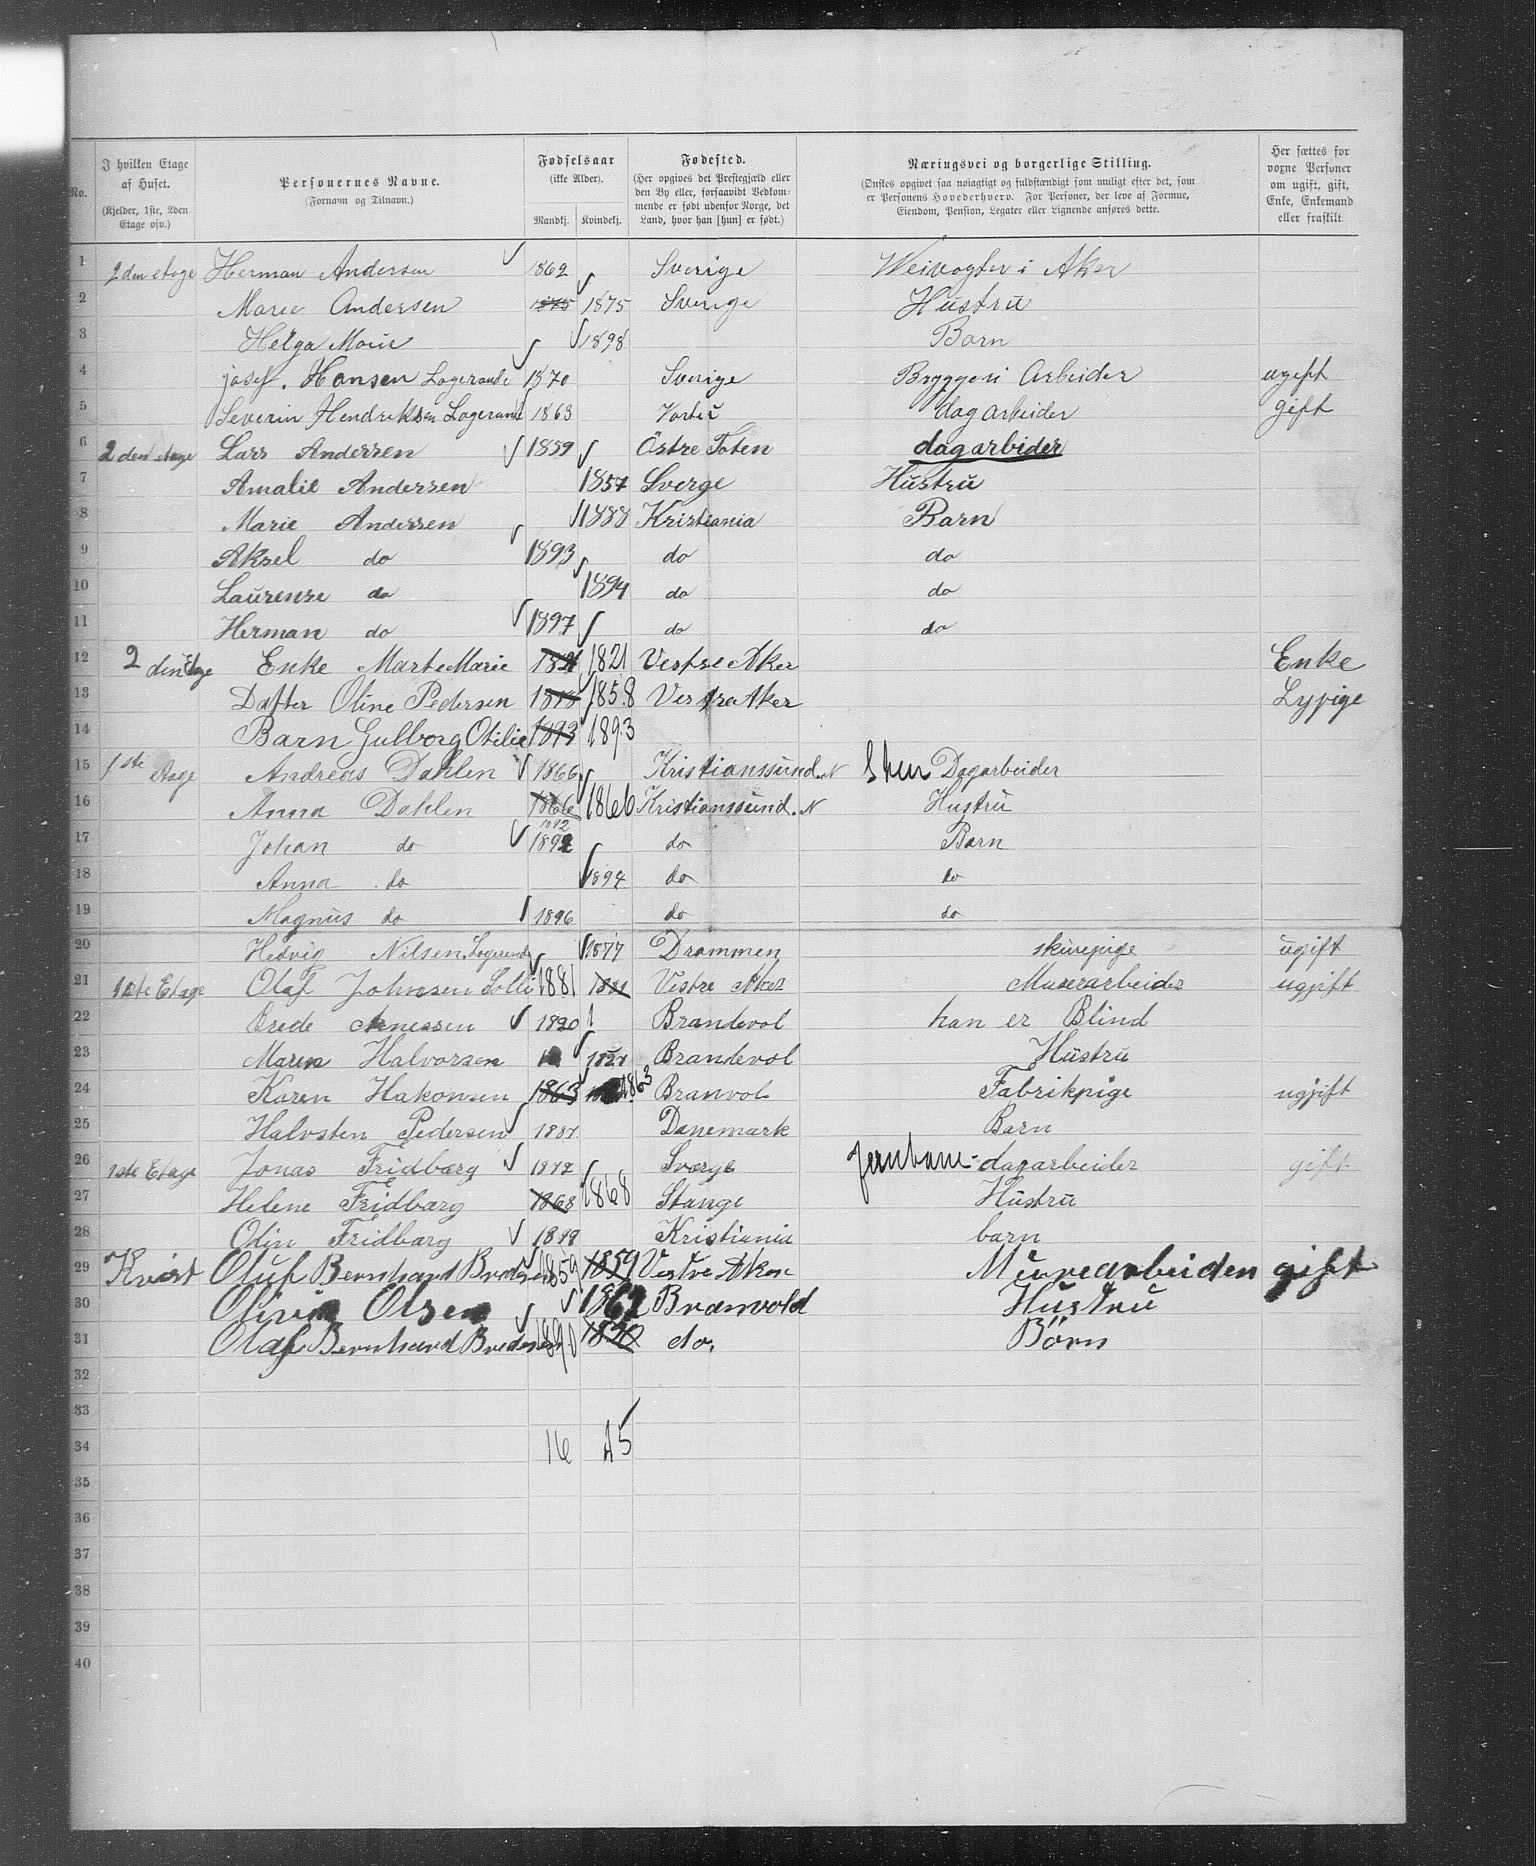 No.
I hvilken Etage af Huset. (Kjelder, 1ste, 2den Etage osv.)
Personernes Navne. (Fornavn og Tilnavn.)
Fødselsaar (ikke Alder). Mandkj. Kvindekj.
Fødested. (Her opgives det Prestegjæld eller den By eller, forsaavidt Vedkommende er født udenfor Norge, det Land, hvor han [hun] er født.)
Næringsvei og borgerlige Stilling. (Ønskes opgivet saa nøiagtigt og fuldstændigt som muligt efter det, som er Personens Hovederhverv. For Personer, der leve af Formue, Eiendom, Pension, Legater eller Lignende anføres dette.
Her sættes for voxne Personer om ugift, gift, Enke, Enkemand eller fraskilt
1 2den etage Herman Andersen 1862 Sverige Weivogter i Aker
2 Marie Andersen 1875 1875 Sverige Hustru
3 Helga Marie 1898 Barn
4 josef. Hansen Logerande 1870 Sverige Bryggeri Arbeider ugift
5 Severin Hendriksen Logerand 1863 dagarbeider gift
6 2 den etage Lars Andersen 1859 Östre Toten dagarbider
7 Amalie Andersen 1857 Sverge Hustru
8 Marie Andersen 1888 Kristiania Barn
9 Aksel do 1893 do do
10 Laurense do 1894 do do
11 Herman do 1897 do do
12 2 den Etage Enke Marte Marie 1821 1821 Vestre Aker Enke
13 Datter Oline Pedersen 1858 Vestre Aker
14 Barn Gulborg Otilie 1893 1893
15 1ste Etage Andreas Dahlen 1866 Kristianssund. N Dagarbeider
16 Anna Dahlen 1866 1866 Kristianssund. N Hustru
17 Johan do 1892 1892 do Barn
18 Anna do 1894 do do
19 Magnus do 1896 do do
20 Hedvig Nilsen Logerende 1877 Drammen skurepige ugift
21 1ste Etage Olaf Johnsen Solli 1881 1881 Vestre Aker Murerarbeider ugjift
22 Brede Arnessen 1820 Brandevol han er Blind
23 Maren Halvorsen Brandevol Hustru
24 Karen Hakonsen 1863 1863 Branvol Fabrikpige ugjift
25 Halvsten Pedersen 1887 Danemark Barn
26 1ste Etage Jonas Fridbarg 1872 Sverge Jernbane-dagarbeider gift
27 Helene Fridbarg 1868 1868 Stange Hustru
28 Odin Fridbarg 1899 Kristiania barn
29 Kvist Oluf Bernhard Bredesen 1859 1859 Vestre Aker Murearbeider gift
30 Olivia Olsen 1862 Branvold Hustru
31 Olaf Bernhard Bredesen 1890 1890 do. Börn
32
33
34 16 15
35
36
37
38
39
40